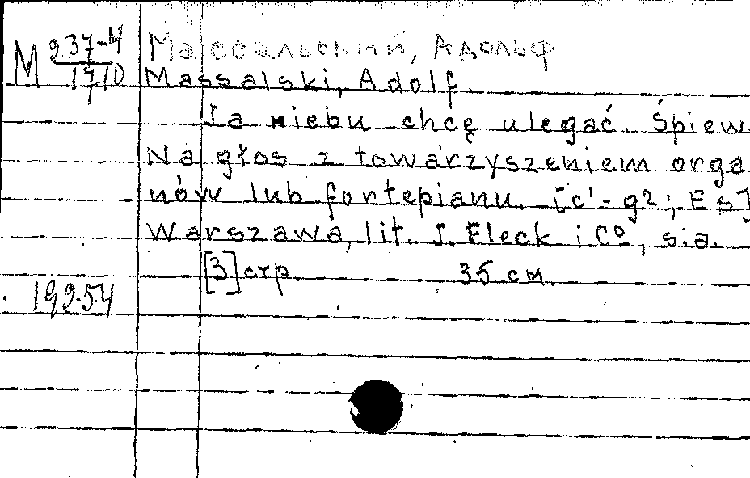 М 937-4
1710
Массальский, Адольф
Massalski, Adolf
Ja niebu chcę ulegać. Śpiew.
Na głos z towarzyszeniem orga
nów lub fortepianu. [c¹-g²; Es]
Warszawa, lit. J. Fleck i Cº, s.a.
[3] стр. 35 см.
192-54